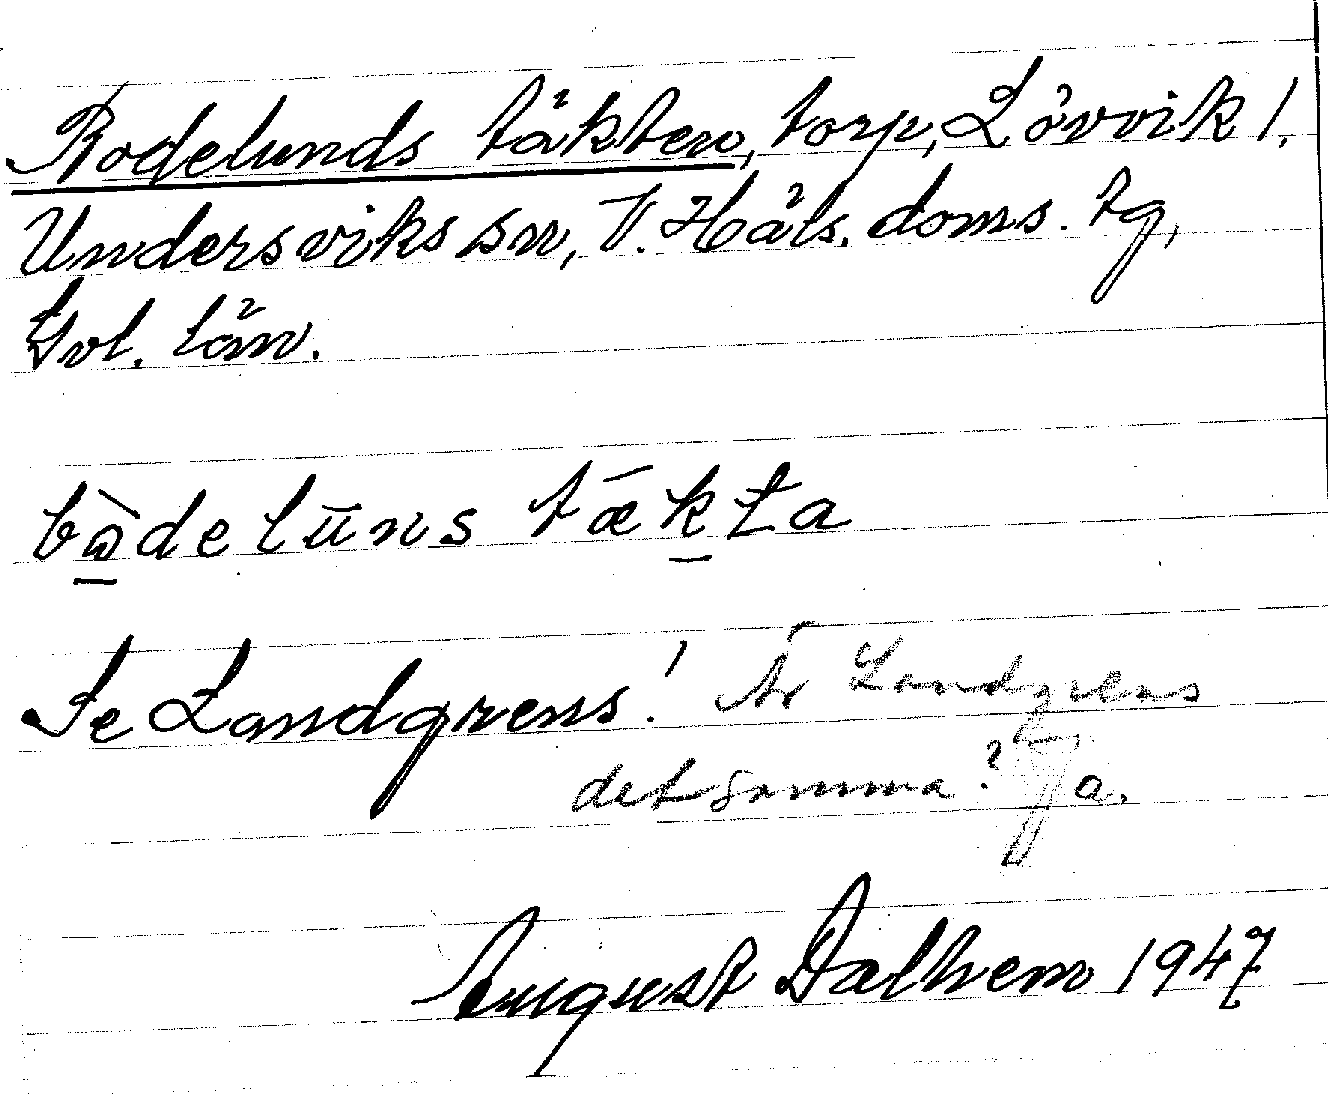 Rodelunds täkten, torp, Lövvik 1,
Undersviks sn, V. Häls. doms. tg,
Gvl. län.
bòdelūns tǣkta
Se Landgrens! Är Landgrens
detsamma? Ja.
August Dalhem 1947